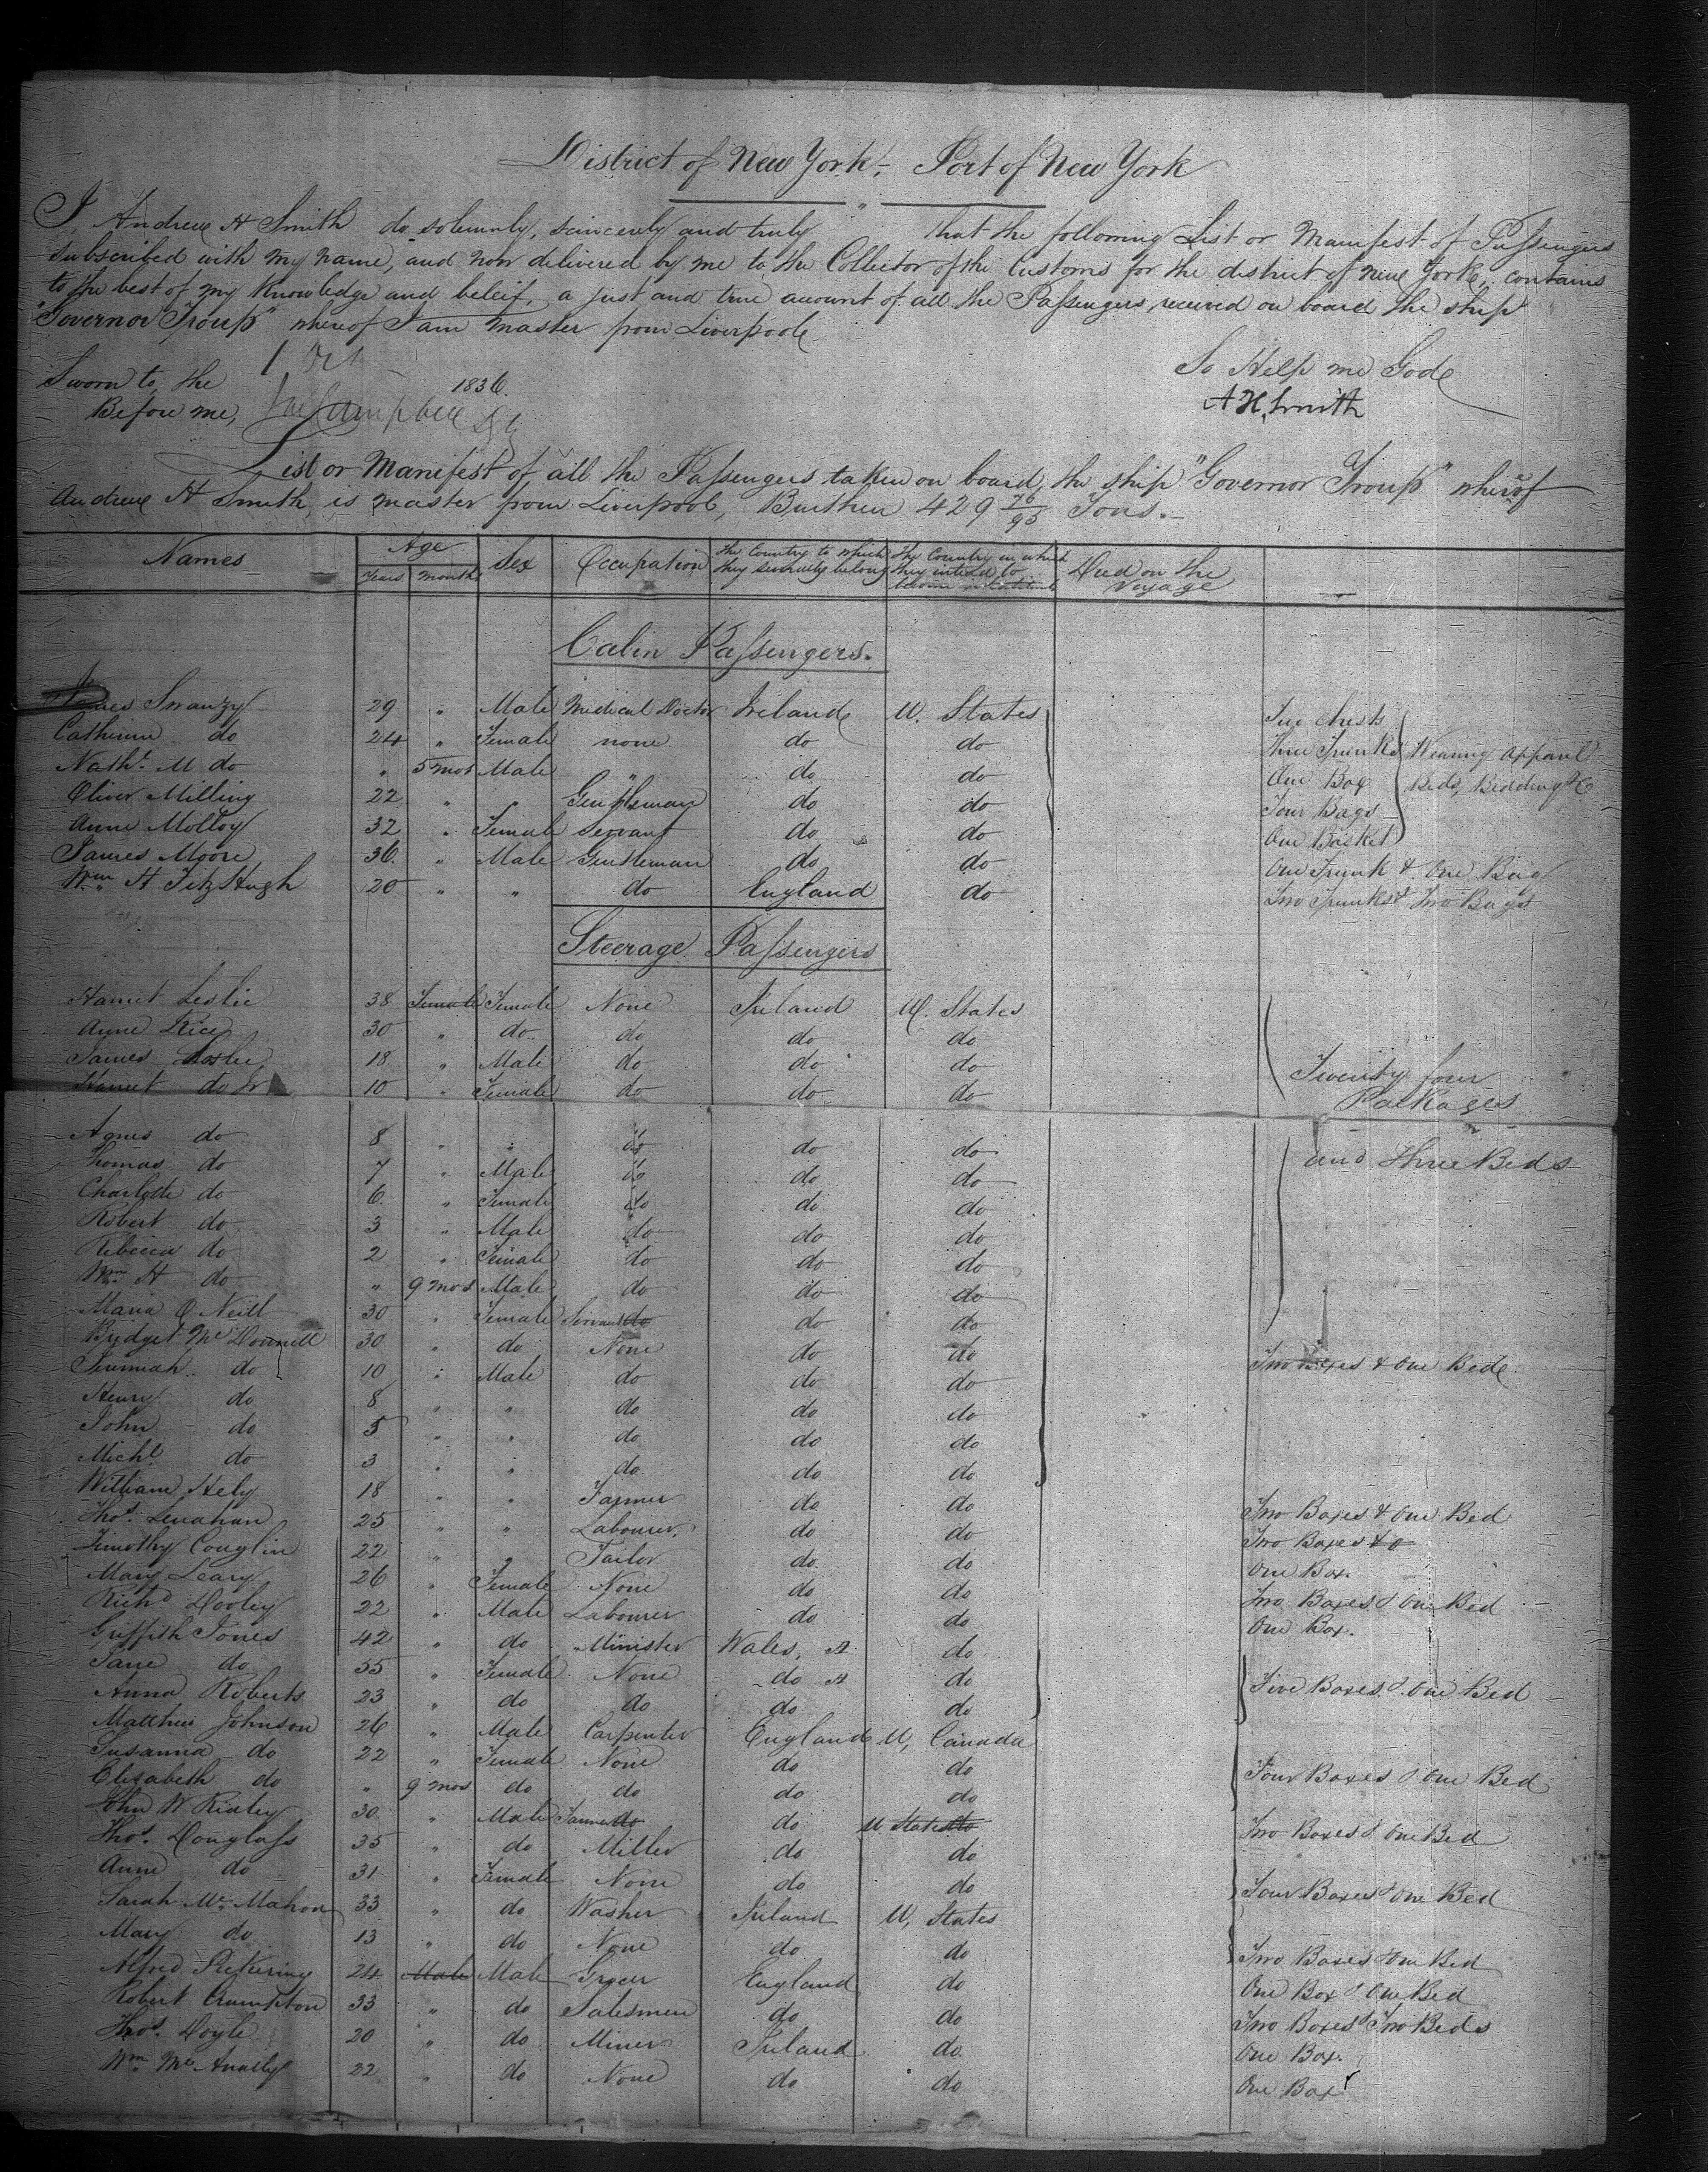 District of New York, Port of New York
I, Andrew H Smith do solemnly, sincerely and truly that the following List or Manifest of Passengers
subscribed with my name, and now delivered by me to the Collector of the Customs for the district of New York, contains
to the best of my knowledge and beleif, a just and true account of all the Passengers received on board the ship
"Governor Troup" whereof I am master from Liverpool
So Help me God
Sworn to, the 1 Oct 1836.
A H Smith
Before me, Campbell
List or Manifest of all the Passengers taken on board the ship "Governor Troup" whereof
Andrew H Smith is master from Liverpool, Burthen 429 76/95 Tons.
Names Age Years Months Sex Occupation The Country to which they severally belong The Country in which they intend to become inhabitants Died on the Voyage
Cabin Passengers.
James Swanzy 29 " Male Medical Doctor Ireland U. States Two Chests
Catherine do 24 " Female none do do Three Trunks Wearing Apparel
Nathl. M do " 5 mos Male " do do One Box Beds, Bedding &c
Oliver Milling 22 " " Gentleman do do Four Bags
Anne Molloy 32 " Female Servant do do One Basket
James Moore 36. " Male Gentleman do do One Trunk & One Bag
Wm. H FitzHugh 20 " " do England do Two Trunks & Two Bags
Steerage Passengers
Harriet Leslie 38 Female Female None Ireland U. States
Anne Rice 30 " do do do do
James Leslie 18 " Male do do do Twenty four
Harriet do Jr 10 " Female do do do Packages
Agnes do 8 " " do do do and Three Beds
Thomas do 7 " Male do do do
Charlotte do 6 " Female do do do
Robert do 3 " Male do do do
Rebecca do 2 " Female do do do
Wm. H do " 9 mos Male do do do
Maria O Neill 30 " Female Servant do do do
Bridget Mc Donnell 30 " do None do do
Jeremiah do 10 " Male do do do Two Boxes & One Bed
Henry do 8 " " do do do
John do 5 " " do do do
Michl. do 3 " " do do do
William Hely 18 " " Farmer do do Two Boxes & One Bed
Thos. Lenahan 25 " " Labourer do do Two Boxes &
Timothy Couglin 22 " " Tailor do do One Box.
Mary Leary 26 " Female None do do Two Boxes & One Bed
Richd Dooley 22 " Male Labourer do do One Box.
Griffith Jones 42 " do Minister Wales, do
Jane do 55 " Female None do do Five Boxes & One Bed
Anna Roberts 23 " do do do do
Matthew Johnson 26 " Male Carpenter England U, Canada
Susanna do 22 " Female None do do Four Boxes & One Bed
Elizabeth do " 9 mos do do do do
John W Ridley 30 " Male do do U States do Two Boxes & One Bed
Thos. Douglass 35 " do Miller do do
Anne do 31 " Female None do do Four Boxes & One Bed
Sarah Mc Mahon 33 " do Washer Ireland U, States
Mary do 13 " do None do do Two Boxes & One Bed
Alfred Pickering 24 Male Male Grocer England do One Box & One Bed
Robert Crumpton 33 " do Salesman do do Two Boxes & Two Beds
Thos. Doyle 20 " do Miner Ireland do One Box.
Wm Mc Anally 22 " do None do do One Box